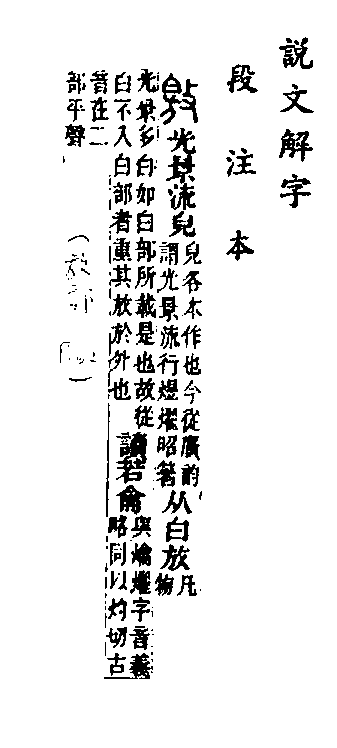 説文解字
段注本
敫 光景流皃
皃各本作也今從廣韵
謂光景流行煜燿昭箸
从白放
凡
物
光景多白如白部所載是也故從
白不入白部者重其放於外也
讀若龠
與爚燿字音義
略同以灼切古
音在二
部平聲
(放部